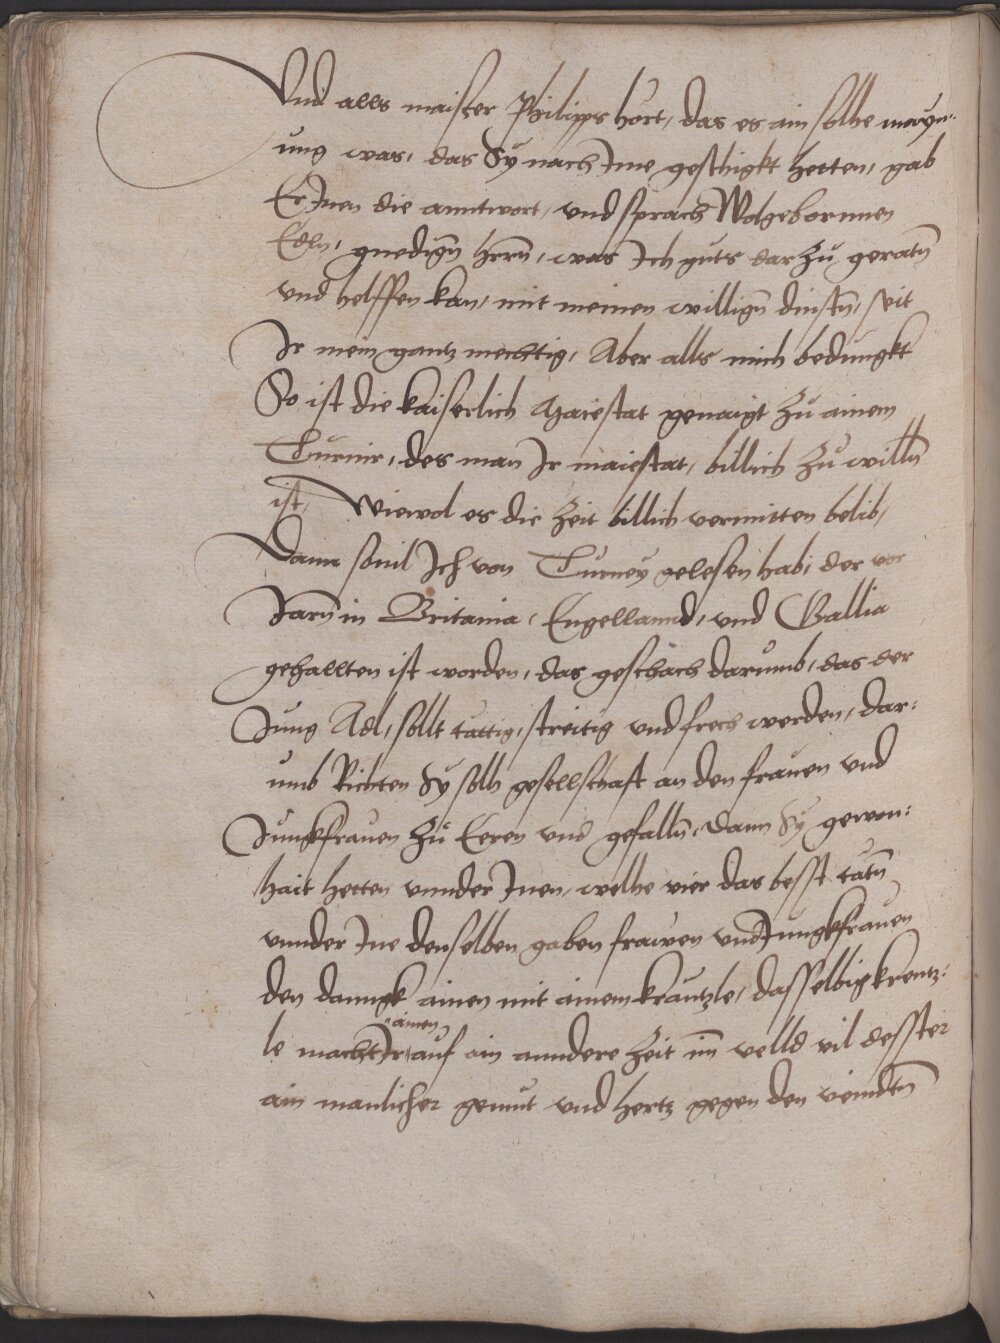 Vnd alls maister Philipps hort, das es ain solhe mayn¬
ung was, das Sy nach Ime geschigkt hetten, gab
Er Inen die anntwort, vnd sprach Wolgebornnen
Edln, gnedign̄ hern̄, was Ich guts dar zu geratn̄
vnd helffen kan, mit meinen willign̄ dinstn̄, seit
Ir mein gantz mechtig, Aber alls mich bedungkt
So ist die kaiserlich Maiestat genaigt zu ainem
Turnir, des man Ir maiestat, billich zu willn̄
ist, Wiewol es die zeit billich vermitten belib,
Dann souil Ich von Turney gelesen hab, der vor
Jarn̄ in Britania, Engellannd, vnd Gallia
gehallten ist worden, das geschach darumb, das der
Jung Adl, sollt tattig, streitig vnd frech werden, dar:
umb Richten Sy solh geselschaft an den frauen vnd
Junckfrauen zu Eeren vnd gefalln̄, dann Sy gewon:
hait hetten vnnder Inen, welhe vier das besst tatn̄
vnnder Ine denselben gaben frawen vnd Jungkfrauen
den dannck ainen mit ainem krantzle, dasselbig krentz:
le macht Ir ainen, auf ain anndere zeit im velld vil desster
ain manlicher gemut vnd hertz gegen den veindtn̄